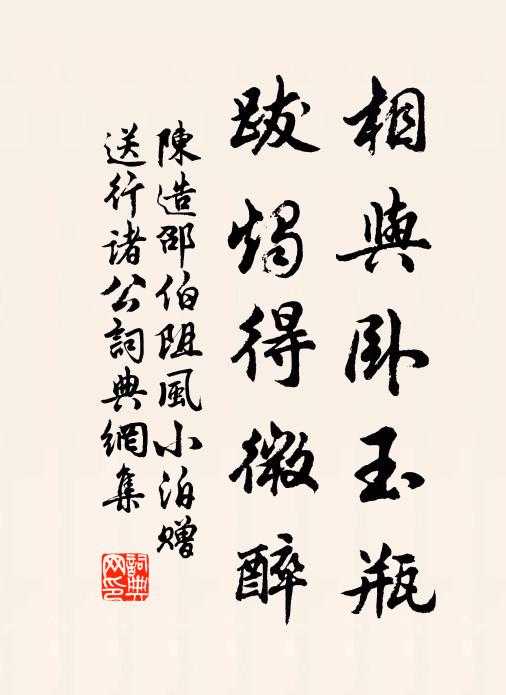 相與卧玉瓶
跋燭得微醉
陳造邵伯阻風小泊贈
送行诸公詞典網集
詞典網印